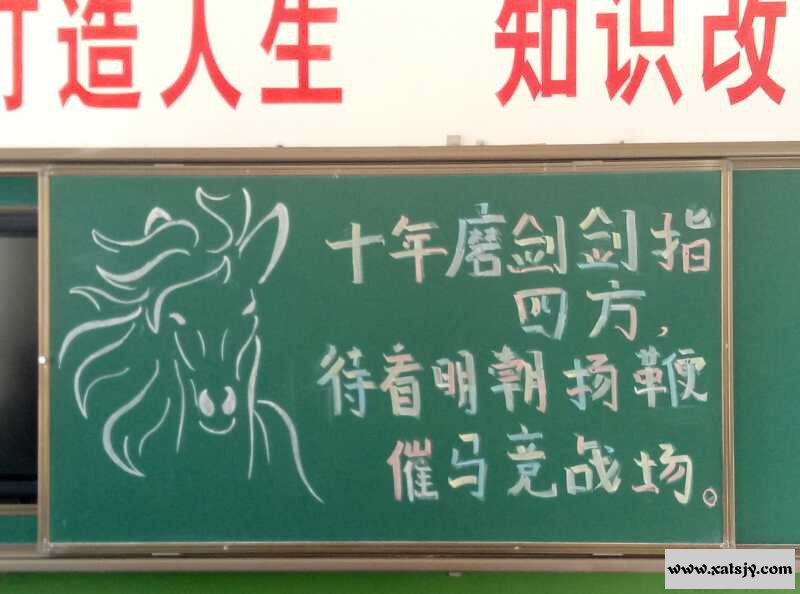 打造人生 知识改
十年磨剑剑指
四方,
待看明朝扬鞭
催马竞战场。
www.xatsjy.com